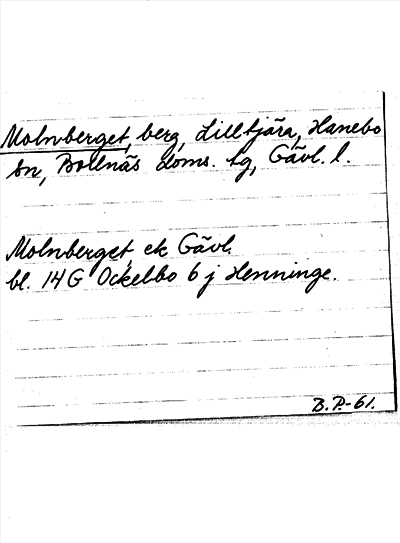 Molnberget, berg, Lilltjära, Hanebo
sn, Bollnäs doms. tg, Gävl. l.
Molnberget, ek Gävl.
bl. 14 G Ockelbo 6 j Henninge.
B. P. -61.